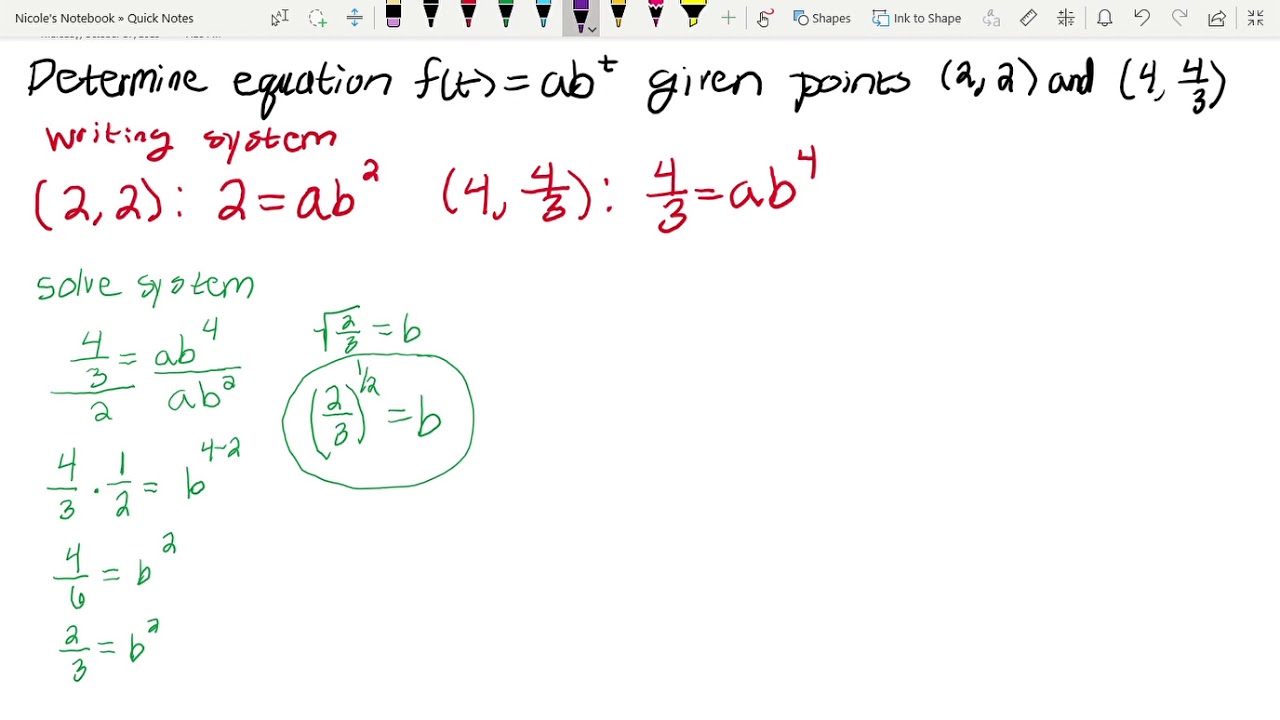 Nicole's Notebook » Quick Notes
Shapes
Ink to Shape
Determine equation f(t) = ab^t given points (2, 2) and (4, 4/3)
writing system
(2, 2): 2 = ab^2 (4, 4/3): 4/3 = ab^4
solve system
4/3 / 2 = ab^4 / ab^2
4/3 · 1/2 = b^(4-2)
4/6 = b^2
2/3 = b^2
√(2/3) = b
(2/3)^(1/2) = b